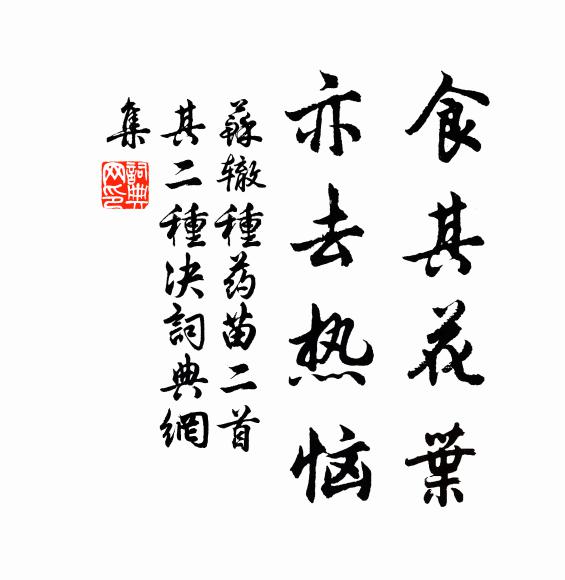 食其花葉
亦去热恼
蘇辙種药苗二首
其二種决詞典網
集
詞典网印